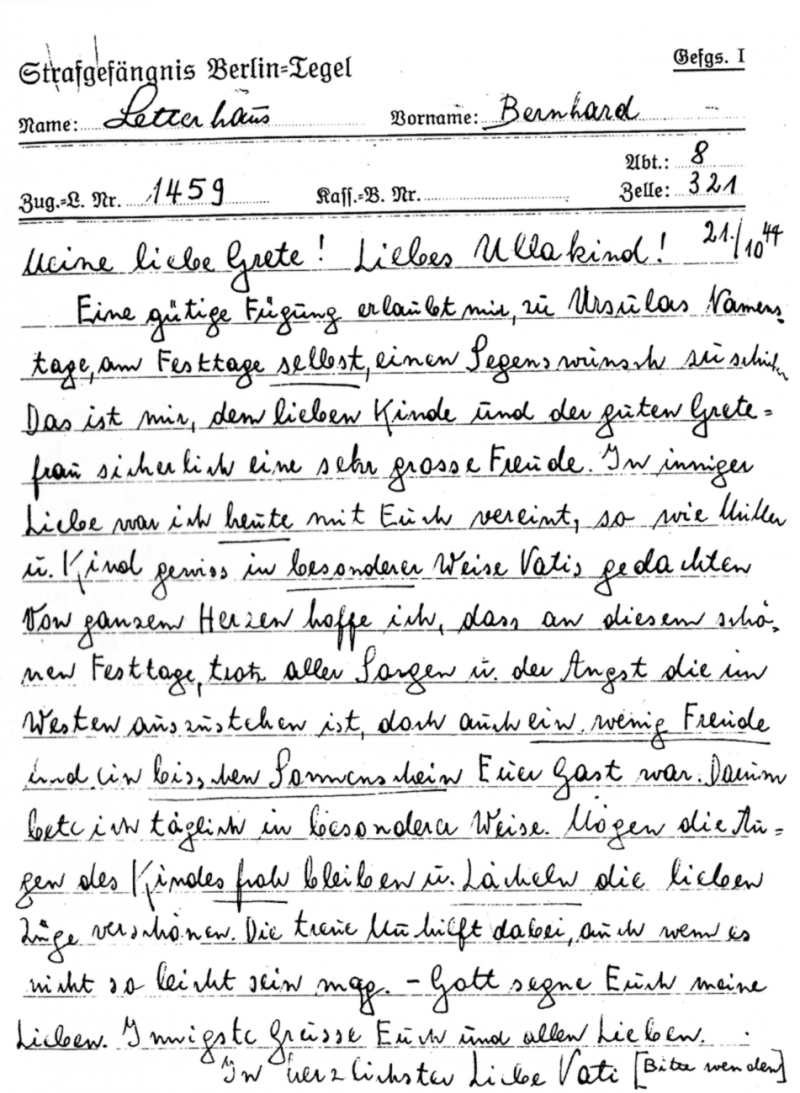 Strafgefängnis Berlin-Tegel
Gefgs. I
Name: Letterhaus Vorname: Bernhard
Abt.: 8
Zug.-L. Nr. 1459 Kass.-B. Nr. Zelle: 321
Meine liebe Grete! Liebes Ullakind! 21./10 44
Eine gütige Fügung erlaubt mir, zu Ursulas Namens-
tage, am Festtage selbst, einen Segenswunsch zu schicken
Das ist mir, dem lieben Kinde und der guten Grete-
frau sicherlich eine sehr grosse Freude. In inniger
Liebe war ich heute mit Euch vereint, so wie Mutter
u. Kind gewiss in besonderer Weise Vatis gedachten
Von ganzem Herzen hoffe ich, dass an diesem schö-
nen Festtage, trotz aller Sorgen u. der Angst die im
Westen auszustehen ist, doch auch ein wenig Freude
und ein bisschen Sonnenschein Euer Gast war. Darum
bete ich täglich in besonderer Weise. Mögen die Au-
gen des Kindes froh bleiben u. Lächeln die lieben
Züge verschönen. Die treue Mu hilft dabei, auch wenn es
nicht so leicht sein mag. - Gott segne Euch meine
Lieben. Innigste Grüsse Euch und allen Lieben.
In herzlichster Liebe Vati [Bitte wenden]